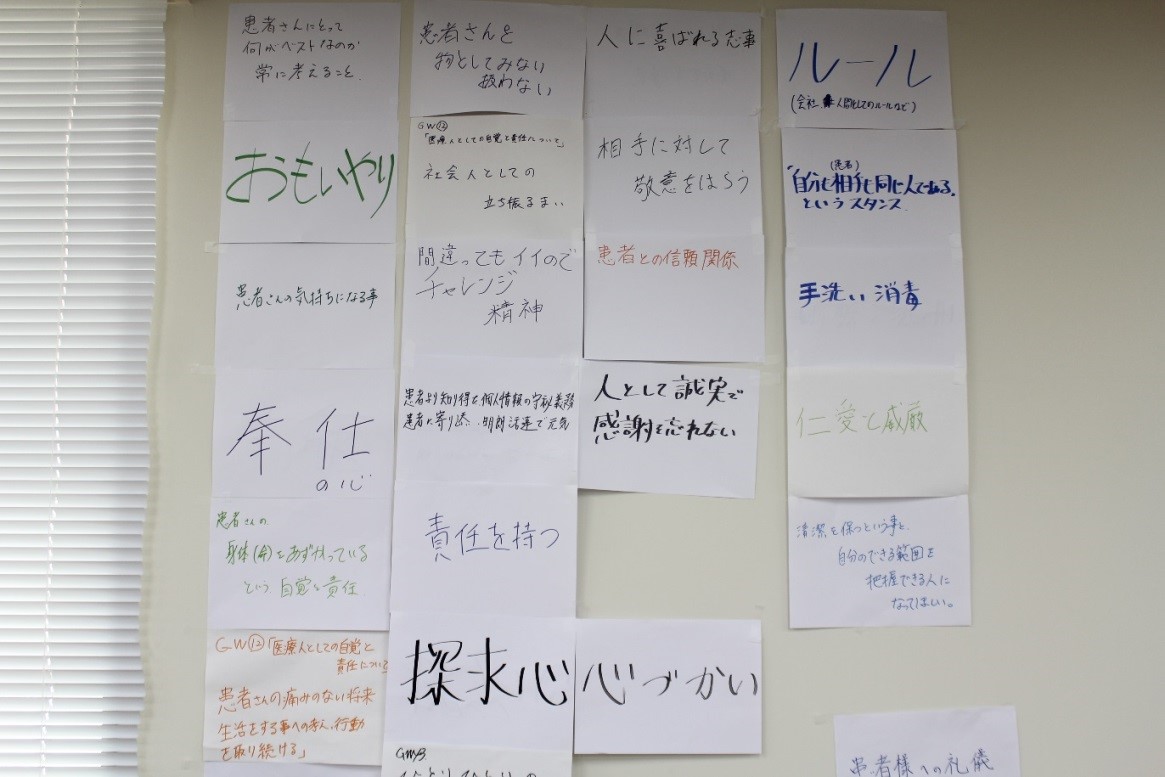 患者さんにとって
何がベストなのか
常に考えること。
おもいやり
患者さんの気持ちになる事
奉仕
の心
患者さんの
身体(命)をあずかっている
という自覚と責任
GW⑫「医療人としての自覚と
責任について
患者さんの痛みのない将来
生活をする事への考え、行動
を取り続ける」
患者さんを
物としてみない
扱わない
GW⑫
「医療人としての自覚と責任について」
社会人としての
立ち振るまい
間違ってもイイので
チャレンジ
精神
患者より知り得た個人情報の守秘義務
患者に寄り添い、明朗活達で元気
責任を持つ
探求心
人に喜ばれる志事
相手に対して
敬意をはらう
患者との信頼関係
人として誠実で
感謝を忘れない
心づかい
ルール
(会社 人間としてのルールなど)
(患者)
"自分も相手も同じ人である"
というスタンス
手洗い 消毒
仁愛と威厳
清潔を保つという事と、
自分のできる範囲を
把握できる人に
なってほしい。
患者様への礼儀